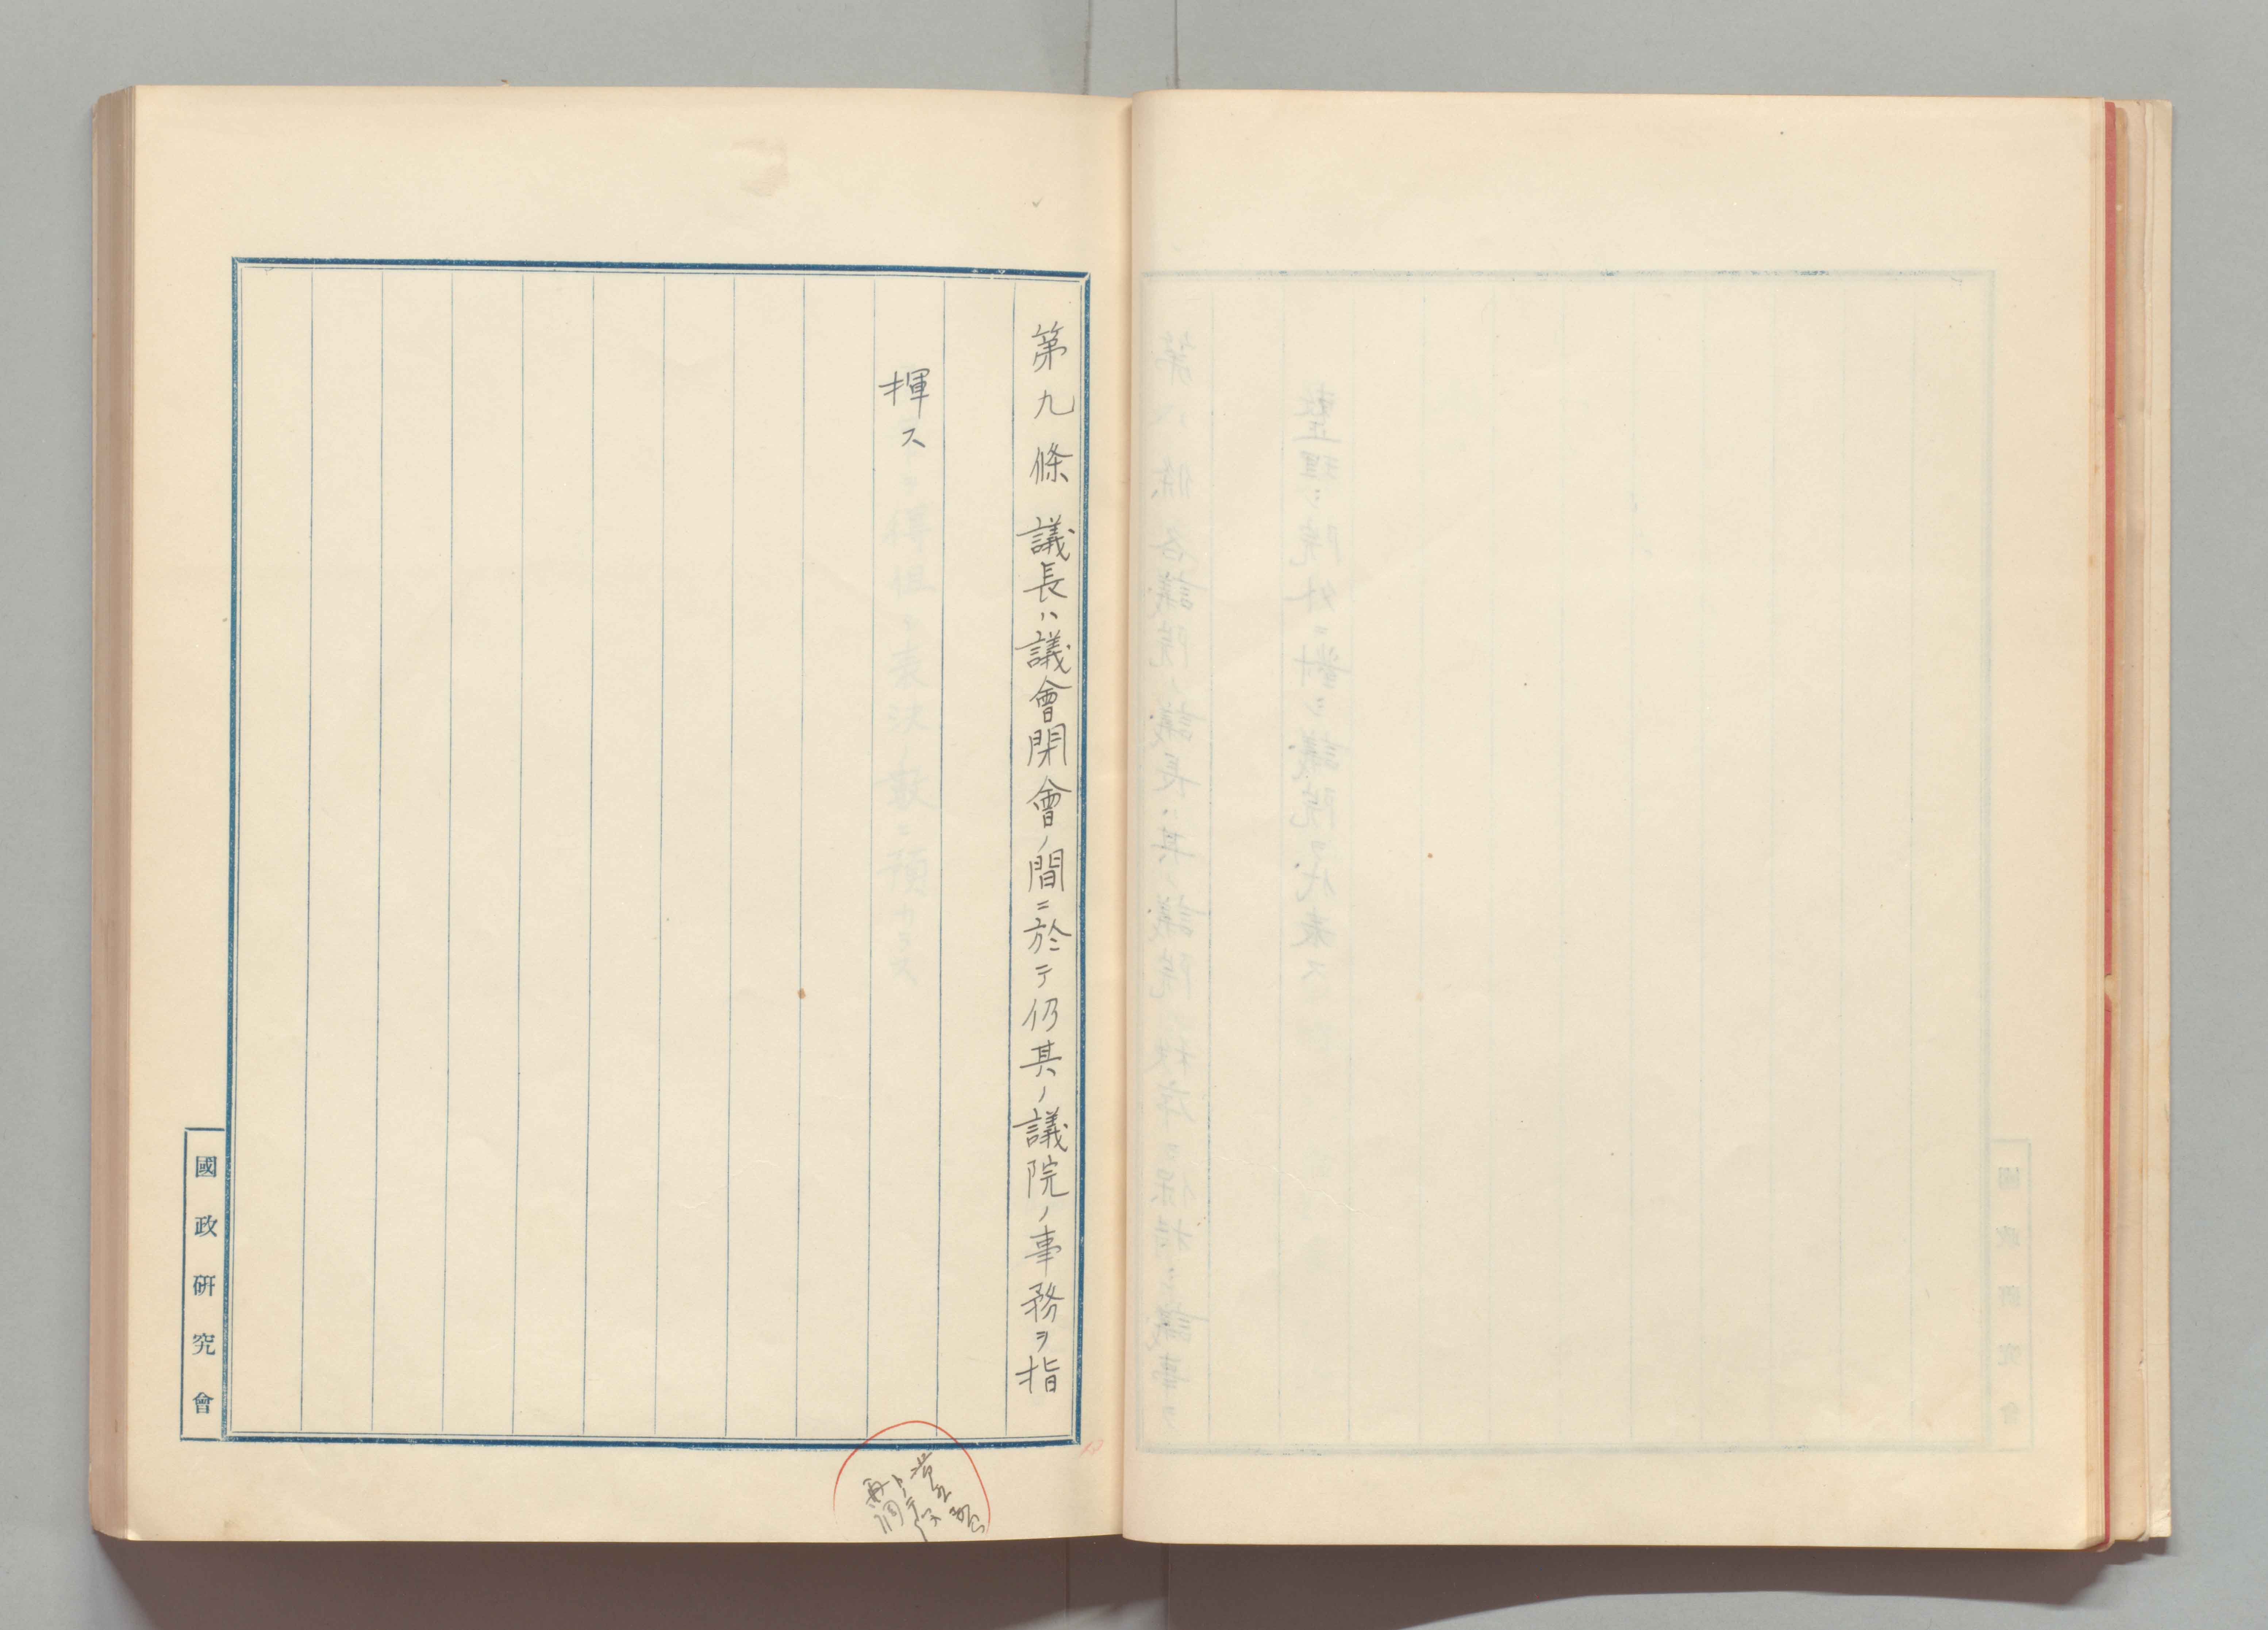 第九條 議長ハ議會閉會ノ間ニ於テ仍其ノ議院ノ事務ヲ指
揮ス
國政研究會